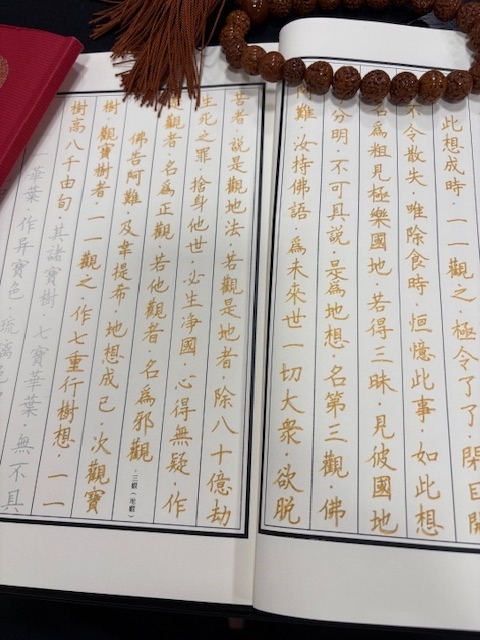 此想成時·一一觀之·極令了了·閉目開
不令散失·唯除食時·恒憶此事·如此想
名為粗見極樂國地·若得三昧·見彼國地
分明·不可具說·是為地想·名第三觀·佛
難·汝持佛語·為未來世一切大衆·欲脫
苦者·說是觀地法·若觀是地者·除八十億劫
生死之罪·捨身他世·必生淨國·心得無疑·作
觀者·名為正觀·若他觀者·名為邪觀·三觀(地觀)
佛告阿難·及韋提希·地想成已·次觀寶
樹·觀寶樹者·一一觀之·作七重行樹想·一一
樹高八千由旬·其諸寶樹·七寶華葉·無不具
一華葉·作異寶色·琉璃色